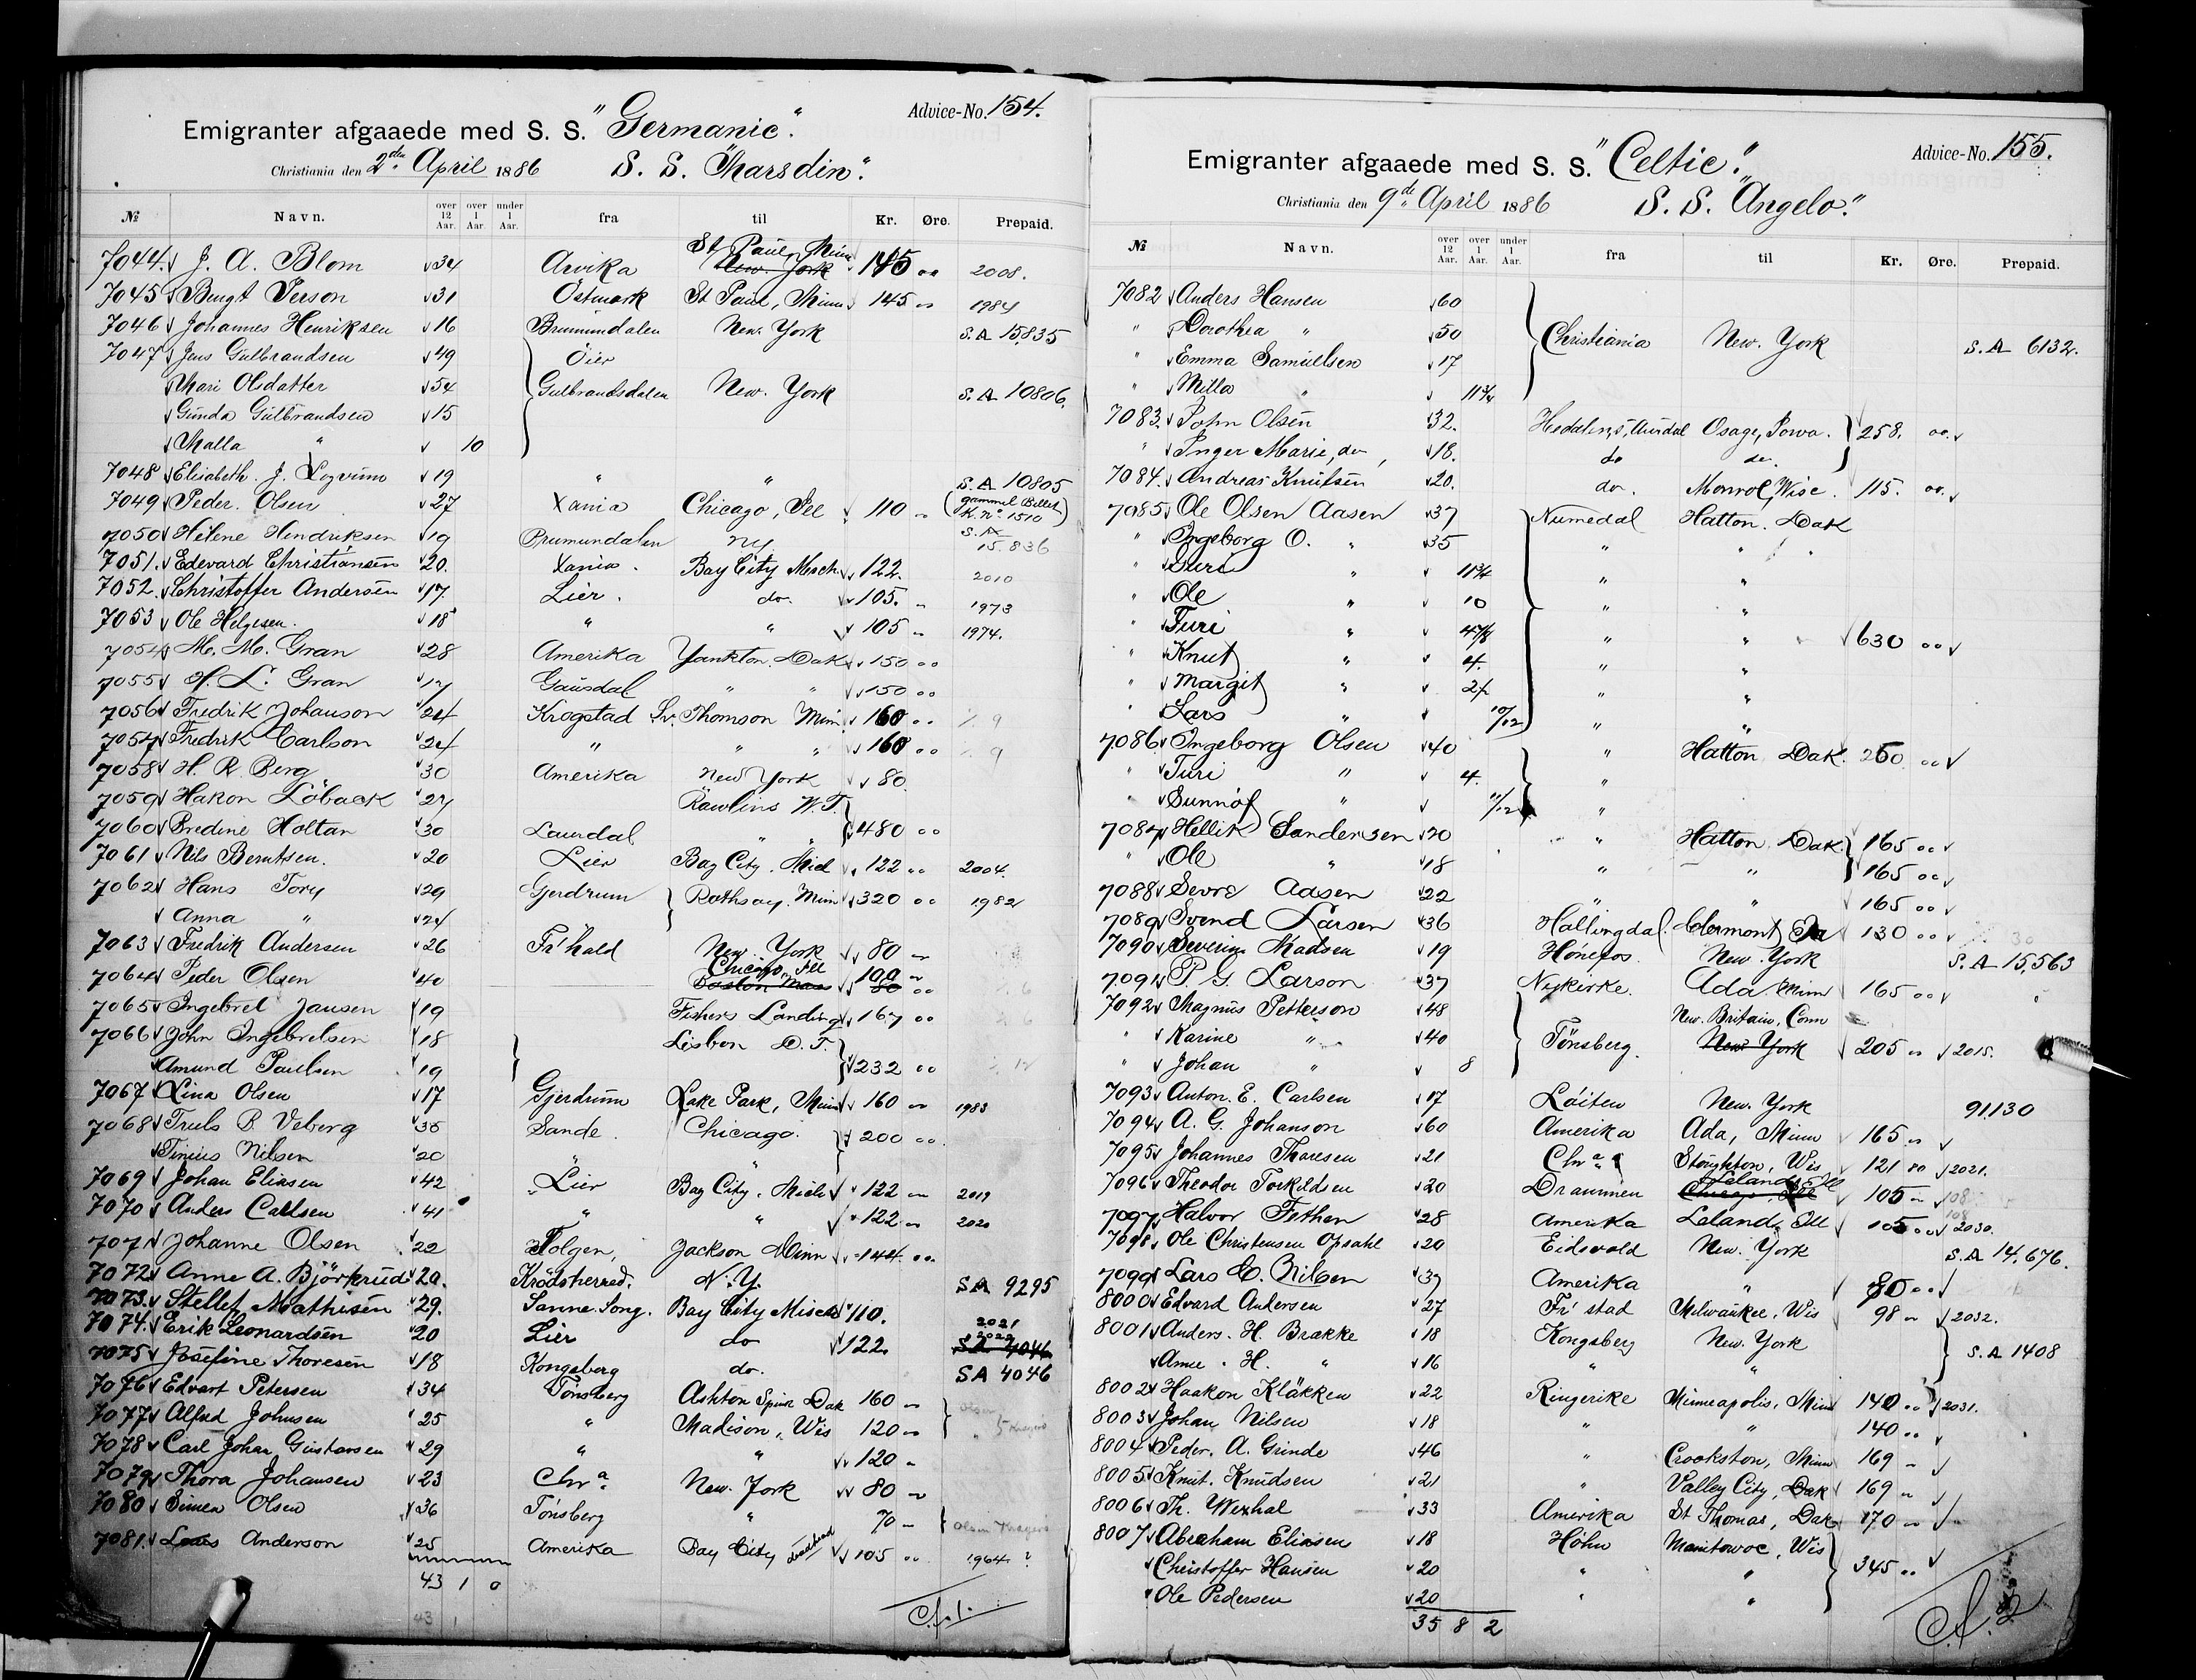 Advice-No. 154.
Emigranter afgaaede med S. S. "Germanic".
Christiania den 2den April 1886 S. S. "Marsdin".
No Navn. over 12 Aar. over 1 Aar. under 1 Aar. fra til Kr. Øre. Prepaid.
7044. J. A. Blom 34 Arvika St Paul, Minn New-York 145 00 2008.
7045 Bengt Person 31 Östmark St Paul, Minn 145 " 1984
7046 Johannes Henriksen 16 Brumundalen New-York S.A 15835
7047 Jens Gulbrandsen 49 Öier
Mari Olsdatter 54 Gulbrandsdalen New-York S.A 10806.
Gunda Gulbrandsen 15
Malla " 10
7048 Elisabeth. J. 19 " " S.A 10805
7049 Peder Olsen 27 Xania Chicago, Ill 110 " (gammel Billet K. No. 1510)
7050 Helene Hendriksen 19 Brumundalen NY S.A. 15.836
7051. Edevard Christiansen 20. Xania. Bay City Mich. 122. 2010
7052. Christoffer Andersen 17. Lier. do. 105. " 1973
7053 Ole Helgesen. 18 " " 105 " 1974.
7054 M. M. Gran 28 Amerika Yankton. Dak 150 00
7055 L. Gran 17 Gausdal " " 150 00
7056 Fredrik Johanson 24 Krogstad Sv. Thomson Minn 160 00 9
7057 Fredrik Carlson 24 " " " 160 00 9
7058 H. R. Berg 30 Amerika New York 80
7059 Hakon Löback 27 Rawlins W.T.
7060 Bredine Holtan 30 Laurdal " " 480 00
7061 Nils Berntsen. 20 Lier Bay City. Mich 122 00 2004.
7062 Hans Tory 29 Gjerdrum Rothsay. Minn 320 00 1982
Anna " 24
7063 Fredrik Andersen 26 Fr'hald New York 80 "
7064 Peder Olsen 40 Chicago, Ill Boston Mass 100 " 80 00
7065 Ingebret Jansen 19 Fishers Landing 167 00
7066 John Ingebretsen 18 Lisbon D.T.
Amund Paulsen 19 232 00
7067 Lina Olsen 17 Gjerdrum Lake Park, Minn 160 " 1983
7068 Truls B. Veberg 36 Sande. Chicago. 200 00.
Tinius Nilsen 20 " "
7069 Johan Eliasen 42 Lier Bay City, Mich 122 " 2019
7070 Anders Carlsen 41 " " 122 " 2020
7071 Johanne Olsen 22 Tolgen, Jackson Minn 144. 00.
7072 Anne A. Björkrud 20. Krödsherred. N.Y. SA 9295
7073. Stellef Mathisen 29. Sanne Song. Bay City Misch 110. 2021
7074. Erik Leonardsen 20 Lier do 122. 2022 SA 4046
7075 Josefine Thoresen 18 Kongsberg do. SA 4046
7076 Edvart Petersen 34 Tönsberg Ashton Spink Dak 160 " Olsen
7077 Alfred Johnsen 25 " Madison, Wis 120 "
7078 Carl Johan Gustavsen 29 " " 120 "
7079 Thora Johansen 23 Chra. New-York 80 "
7080 Simen Olsen 36 Tönsberg " 70 " Olsen
7081. Anderson 25 Amerika Bay City 105 00 1964 ?
43 1 0
43 1
Advice-No. 155.
Emigranter afgaaede med S. S. "Celtic".
Christiania den 9de April 1886 S. S. "Angelo."
No Navn. over 12 Aar. over 1 Aar. under 1 Aar. fra til Kr. Øre. Prepaid.
7082 Anders Hansen 60
" Dorothea " 50 Christiania New-York S.A 6132.
" Emma Samuelsen 17
" Milla " 11 3/4
7083. John Olsen 32. Hedalen, S. Aurdal Osage, Iowa. 258. 00.
" Inger Marie, do 18. do do.
7084. Andreas Knutsen 20. do. Monroe, Wisc. 115. 00.
7085 Ole Olsen Aasen 37 Numedal Hatton. Dak
" Ingeborg O. " 35 " " "
" Guri " 11 3/4 " "
" Ole " 10 " "
" Turi " 4 7/8 " " 630 00
" Knut " 4. " "
" Margit " 2 1/2 " "
" Lars " 10/12 " "
7086 Ingeborg Olsen 40 " Hatton Dak. 250 00
" Turi " 4. "
" Sunnöf " 11/12 "
7087 Hellik Sandersen 20 " Hatton Dak 165 00
" Ole " 18 " " 165 00
7088 Sevre Aasen 22 " " 165 00
7089 Svend Larsen 36 Hallingdal. Clermont Ia 130 00 30
7090 Severin Madsen 19 Hönefos New-York S.A 15,563
7091 P. G. Larson 37 Nykirke. Ada Minn 165 00
7092 Magnus Petterson 48 New-Britain, Conn
" Karine " 40 Tönsberg. New York 205 " 2015.
" Johan " 8
7093 Anton. E. Carlsen 17 Löiten New-York 91,130
7094 A. G. Johanson 60 Amerika Ada, Minn 165 "
7095 Johannes Thoresen 21 Chra. Stoughton, Wis 121 80 2021.
7096 Theodor Torkildsen 20 Drammen Leland, Ill Chicago, Ill 105 " 108
7097 Halvor Fethen 28 Amerika Leland, Ill 105 00 108 2030.
7098 Ole Christensen Opsahl 20 Eidsvold New-York S.A 14,676.
7099 Lars C. Nilsen 37 Amerika " 80 00
8000 Edvard Andersen 27 Fr'stad Milwaukee, Wis 98 " 2032.
8001 Anders. H. Brakke 18 Kongsberg New-York S.A 1408
Anne. H. " 16 " "
8002 Haakon Kläkken 22 Ringerike Minneapolis, Minn 140 00 2031.
8003 Johan Nilsen 18 " " 140 00
8004 Peder. A. Grinde 46 " Crookston, Minn 169 "
8005 Knut. Knudsen 21 " Valley City, Dak 169 "
8006 Th. Wexhal 33 Amerika St Thomas, Dak 170 "
8007 Abraham Eliasen 18 Höhn Manitowoc, Wis
Christoffer Hansen 20 " " 345 00
Ole Pedersen 20 " "
35 8 2